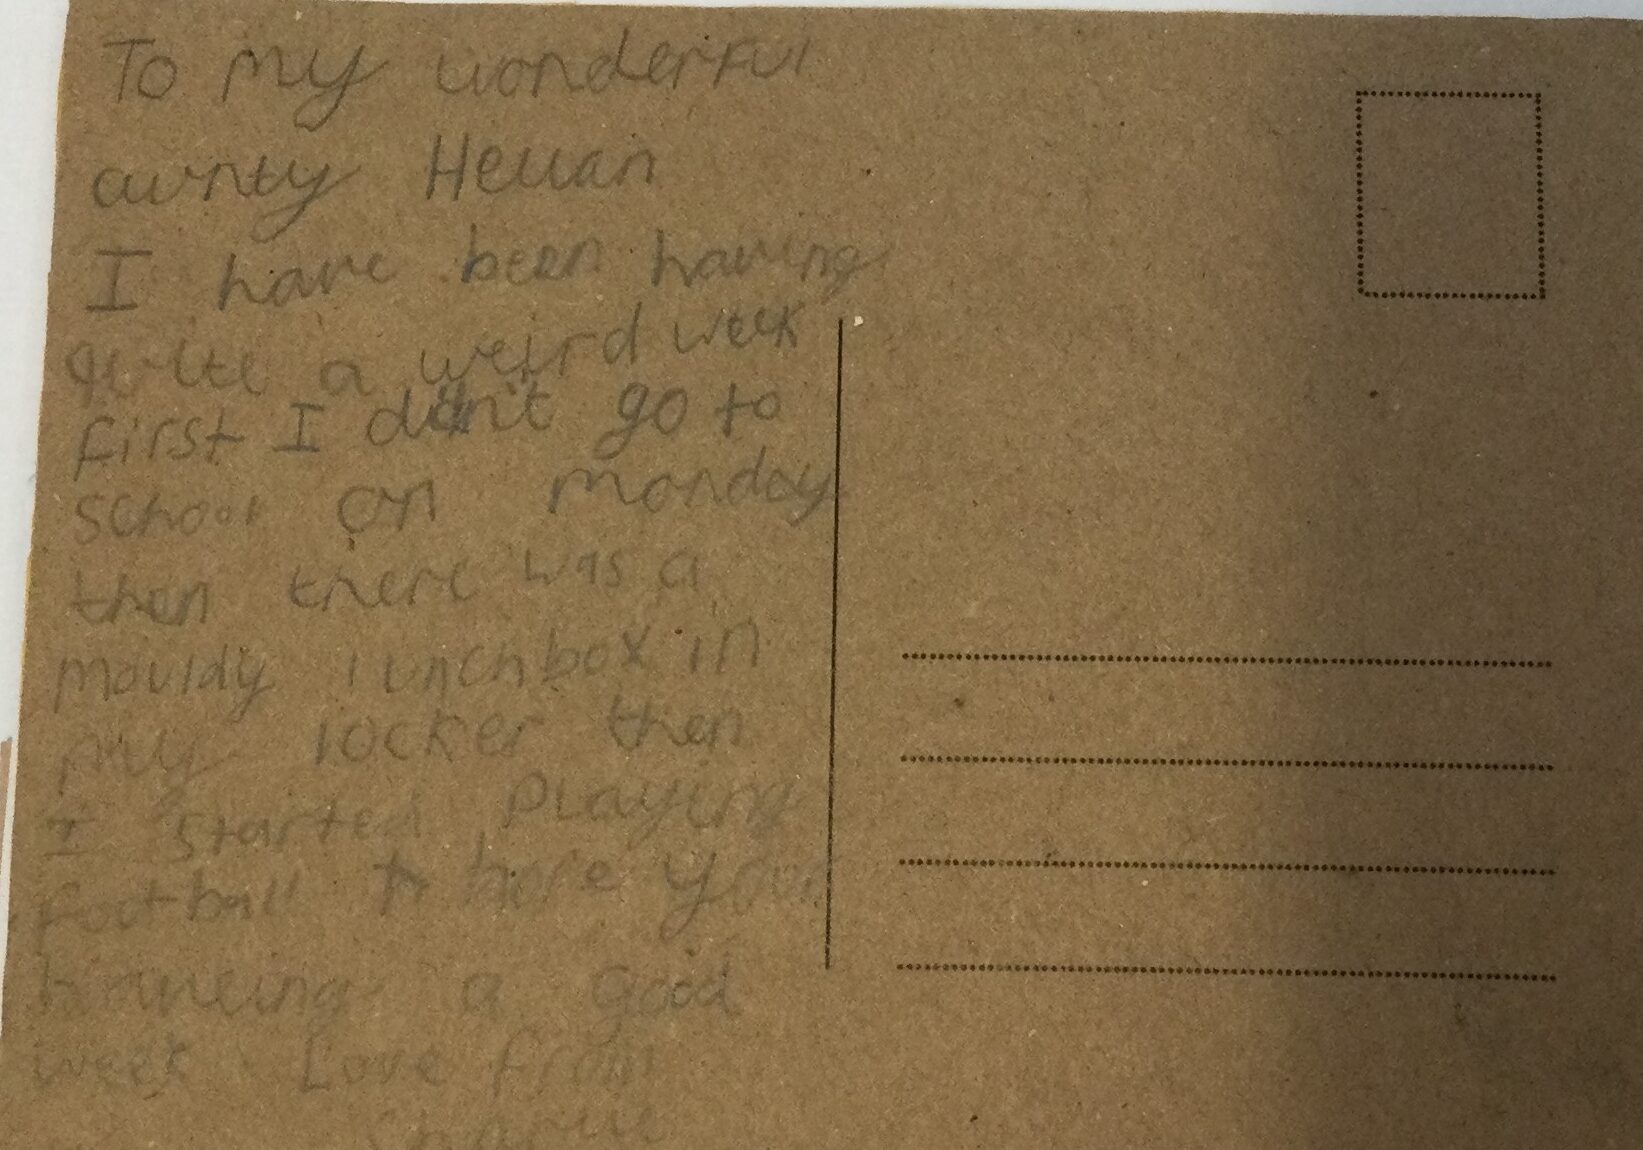 To my wonderful
aunty Heuan
I have been having
quite a weird week
first I didn't go to
school on monday
then there was a
mouldy lunchbox in
my locker then
I started playing
football I hope your
haveing a good
week Love from